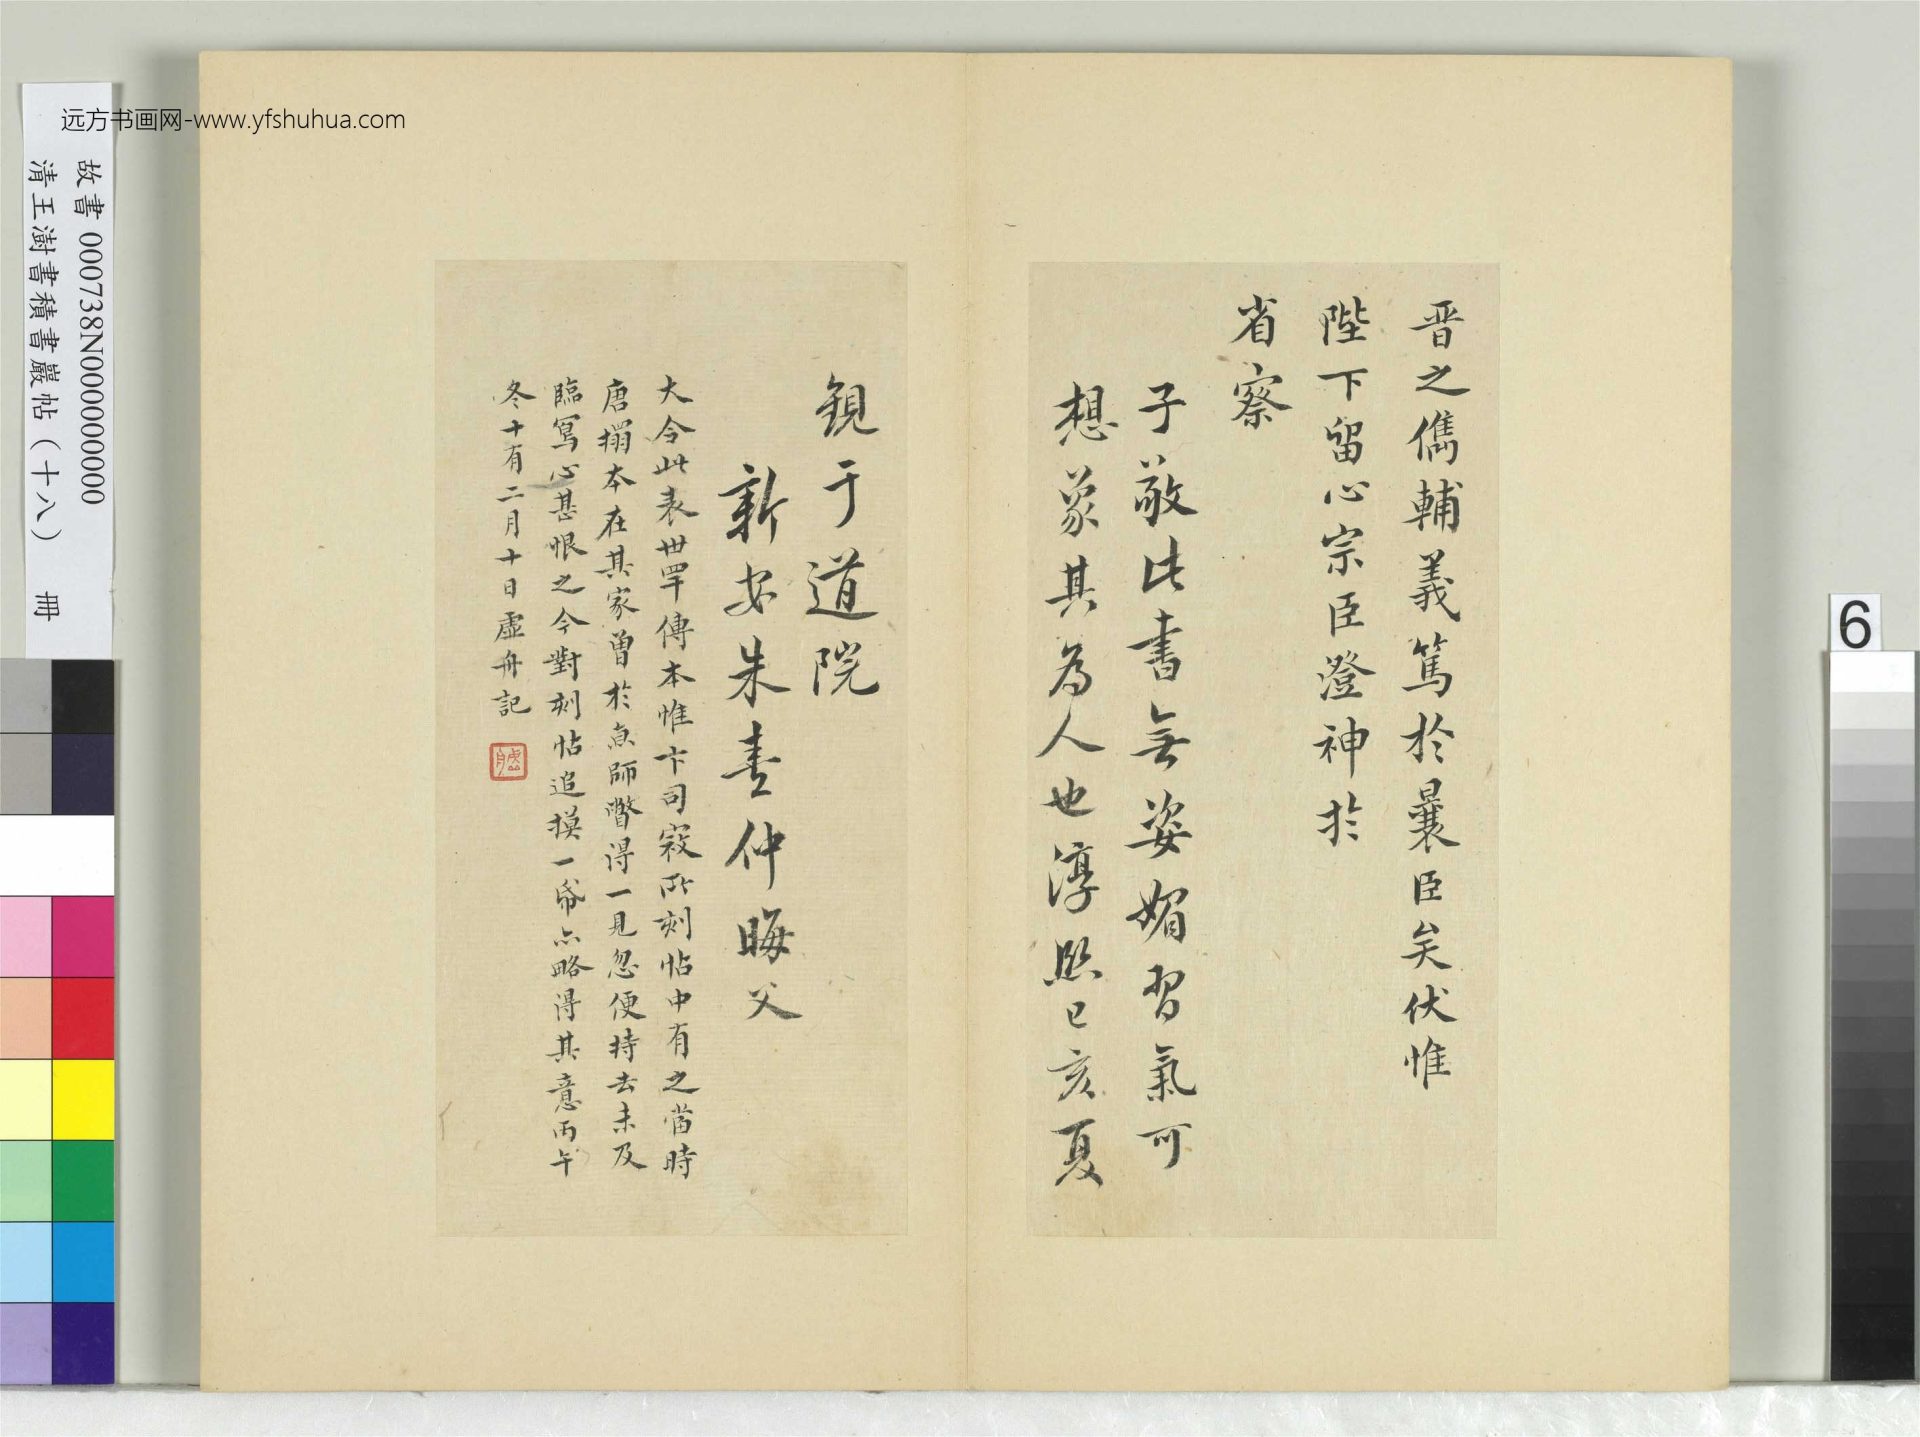 远方书画网-www.yfshuhua.com
故書 000738N000000000
清王澍書積書巖帖（十八） 冊
6
晋之儁輔義篤於曩臣矣伏惟
陛下留心宗臣澄神於
省察
子敬此書無姿媚習氣可
想象其為人也淳熙己亥夏
觀于道院
新安朱熹仲晦父
大令此表世罕傳本惟卞司寇所刻帖中有之當時
唐搨本在其家曾於京師瞥得一見忽便持去未及
臨寫心甚恨之今對刻帖追摸一帋亦略得其意丙午
冬十有二月十日虛舟記